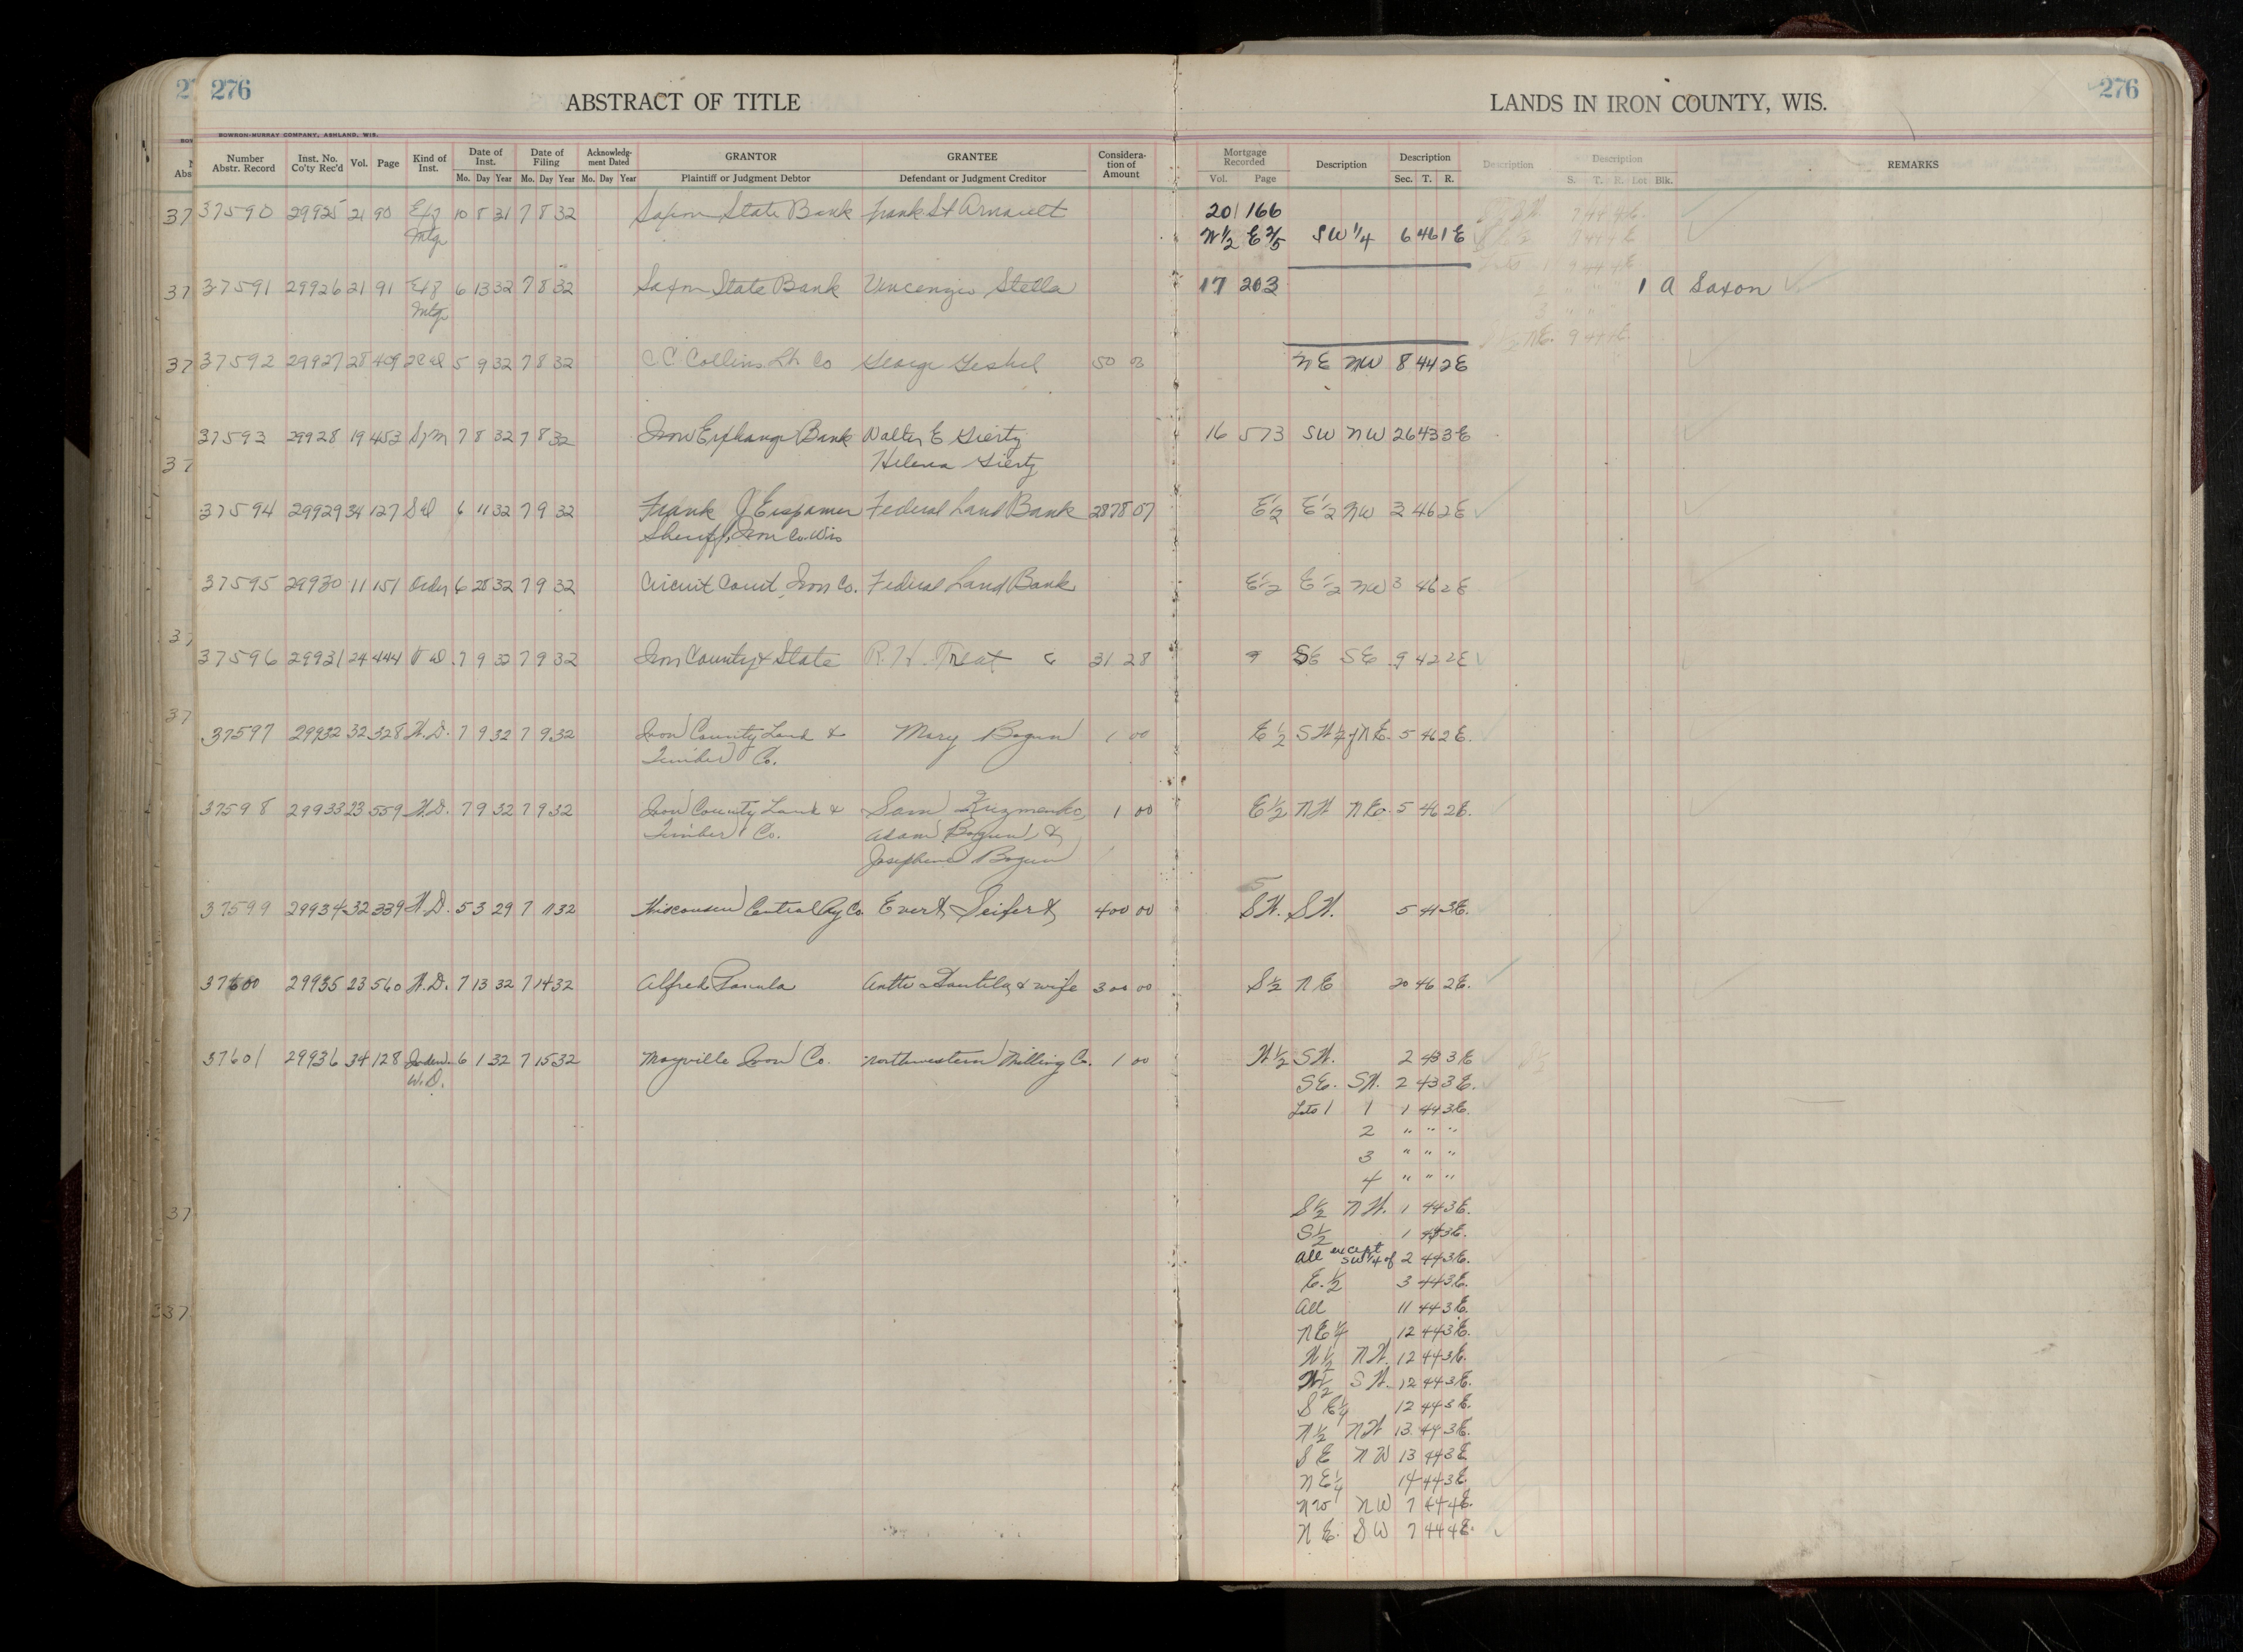 276
ABSTRACT OF TITLE
LANDS IN IRON COUNTY, WIS.
276
BOWRON-MURRAY COMPANY, ASHLAND, WIS.
Number Abstr. Record Inst. No. Co'ty Rec'd Vol. Page Kind of Inst. Date of Inst. Date of Filing Acknowledgment Dated GRANTOR GRANTEE Consideration of Amount Mortgage Recorded Description Description Description Description REMARKS
Mo. Day Year Mo. Day Year Mo. Day Year Plaintiff or Judgment Debtor Defendant or Judgment Creditor Vol. Page Sec. T. R. S. T. R. Lot Blk.
37590 29925 21 90 10 8 31 7 8 32 Saxon State Bank Frank St Arnault 20 166
Mtg W 1/2 E 2/5 SW 1/4 6 46 1 E
37591 29926 21 91 6 13 32 7 8 32 Saxon State Bank Vincenzio Stella 17 203 1 A Saxon
Mtg
37592 29927 28 409 5 9 32 7 8 32 C C Collins Co George 50 NE NW 8 44 2 E
37593 29928 19 453 7 8 32 7 8 32 Iron Exchange Bank Walter E Giertz 16 573 SW NW 26 43 3 E
Helena Giertz
37594 29929 34 127 S D 6 11 32 7 9 32 Frank J Erspamer Federal Land Bank 2878 07 E 1/2 E 1/2 NW 3 46 2 E
Sheriff, Iron Co. Wis
37595 29930 11 151 Order 6 28 32 7 9 32 Circuit Court, Iron Co. Federal Land Bank E 1/2 E 1/2 NW 3 46 2 E
37596 29931 24 444 T D 7 9 32 7 9 32 Iron County & State R. H. Treat 31 28 SE SE 9 42 2 E
37597 29932 32 328 W.D. 7 9 32 7 9 32 Iron County Land & Mary Bogun 1 00 E 1/2 SW 1/4 of NE. 5 46 2 E.
Timber Co.
37598 29933 23 559 W.D. 7 9 32 7 9 32 Iron County Land & Sam Kuzmenko, 1 00 E 1/2 NW NE. 5 46 2 E.
Timber Co. Adam Bogun &
Josephine Bogun
37599 29934 32 339 W.D. 5 3 29 7 11 32 Wisconsin Central Ry Co. Evert Seifert 400 00 SW. SW. 5 41 3 E.
37600 29935 23 560 W.D. 7 13 32 7 14 32 Alfred Antti & wife 300 00 S 1/2 NE 20 46 2 E.
37601 29936 34 128 Inden. 6 1 32 7 15 32 Mayville Iron Co. Northwestern Milling Co. 1 00 W 1/2 SW. 2 43 3 E
W.D. SE. SW. 2 43 3 E.
Lots 1 1 1 44 3 E.
2 " " "
3 " " "
4 " " "
S 1/2 NW. 1 44 3 E.
S 1/2 1 44 3 E.
All except SW 1/4 of 2 44 3 E.
E. 1/2 3 44 3 E.
All 11 44 3 E.
NE 1/4 12 44 3 E.
W 1/2 NW. 12 44 3 E.
W 1/2 SW. 12 44 3 E.
SE 1/4 12 44 3 E.
N 1/2 NW 13 44 3 E.
SE NW 13 44 3 E
NE 1/4 14 44 3 E.
NW NW 7 44 4 E.
NE. SW 7 44 4 E.